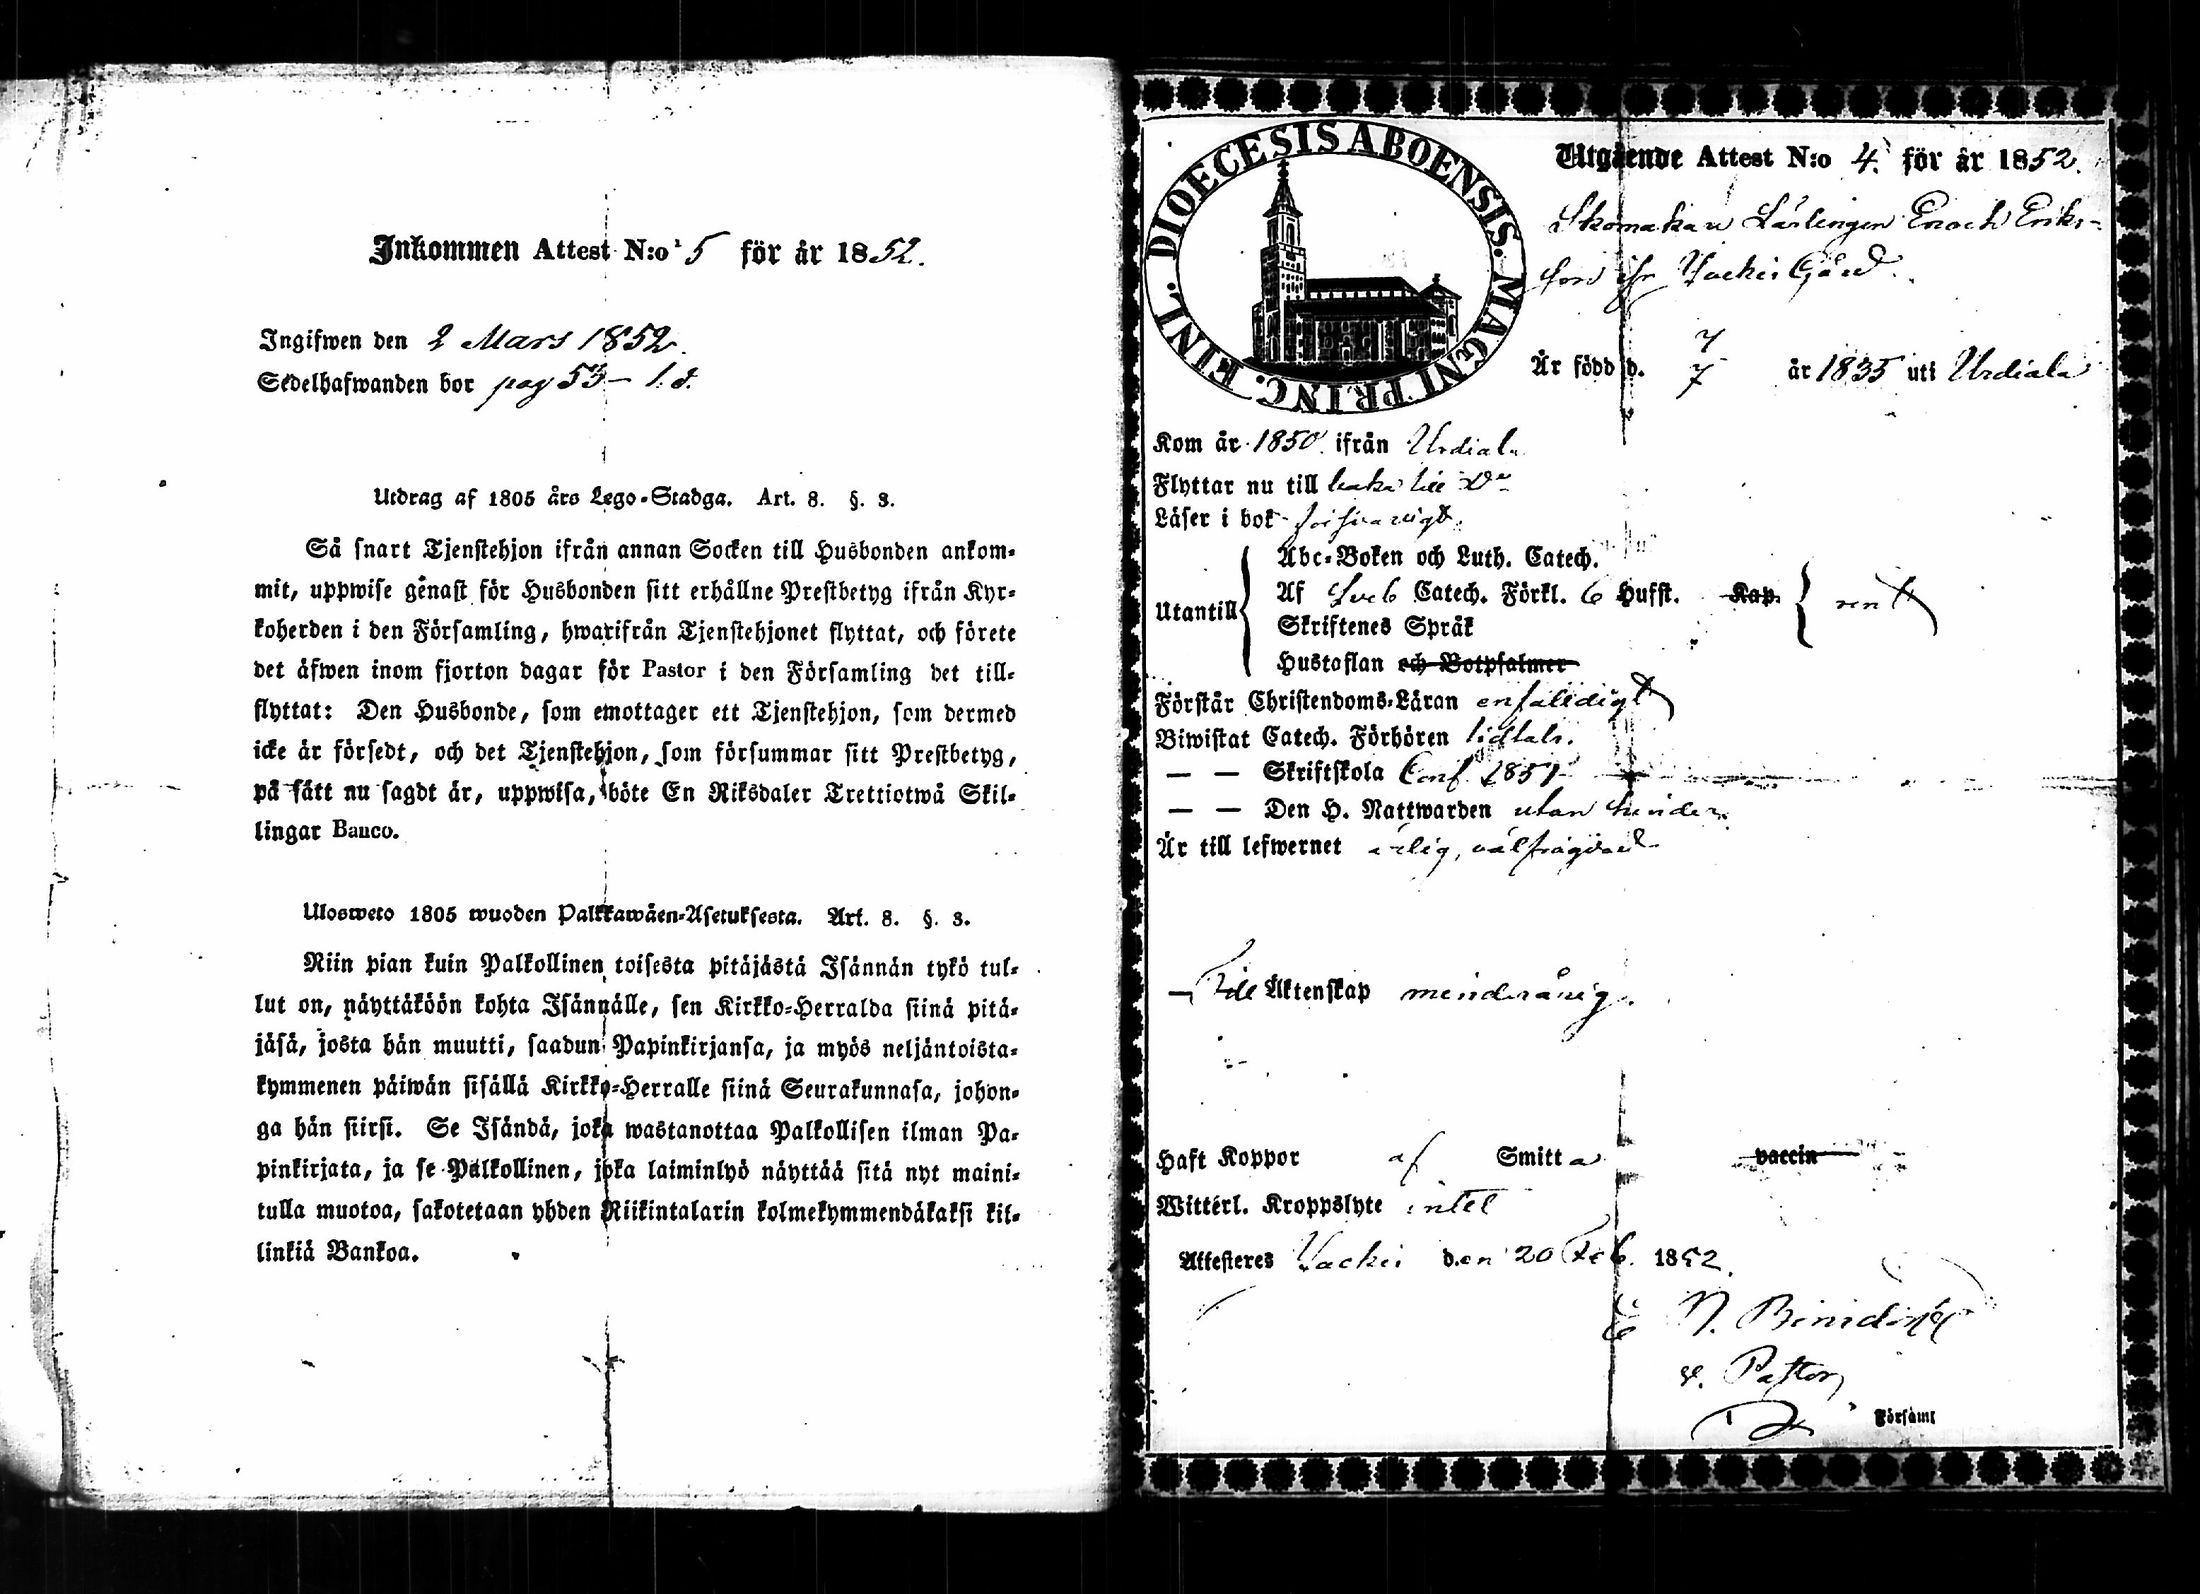 Inkommen Attest N:o 5 för år 1852.
Ingifwen den 2 Mars 1852.
Sedelhafwanden bor pag 53 – 1. d.
Utdrag af 1805 års Lego-Stadga. Art. 8. §. 3.
Så snart Tjenstehjon ifrån annan Socken till Husbonden ankom-
mit, uppwise genast för Husbonden sitt erhållne Prestbetyg ifrån Kyr-
koherden i den Församling, hwarifrån Tjenstehjonet flyttat, och förete
det äfwen inom fjorton dagar för Pastor i den Församling det till-
flyttat: Den Husbonde, som emottager ett Tjenstehjon, som dermed
icke är försedt, och det Tjenstehjon, som försummar sitt Prestbetyg,
på sätt nu sagdt är, uppwisa, böte En Riksdaler Trettiotwå Skil-
lingar Banco.
Ulosweto 1805 wuoden Palkkawäen-Asetuksesta. Art. 8. §. 3.
Niin pian kuin Palkollinen toisesta pitäjästä Isännän tykö tul-
lut on, näyttäköön kohta Isännälle, sen Kirkko-Herralda siinä pitä-
jäsä, josta hän muutti, saadun Papinkirjansa, ja myös neljäntoista-
kymmenen päiwän sisällä Kirkko-Herralle siinä Seurakunnasa, johon-
ga hän siirsi. Se Isändä, joka wastanottaa Palkollisen ilman Pa-
pinkirjata, ja se Palkollinen, joka laiminlyö näyttää sitä nyt maini-
tulla muotoa, sakotetaan yhden Riikintalarin kolmekymmendäkaksi kil-
linkiä Bankoa.
DIOECESIS ABOENSIS. MAGNI PRINC. FINL.
Utgående Attest N:o 4. för år 1852.
Skomakare Lärlingen Enoch Eriks-
son ifr Gård.
År född d. 7/7 år 1835 uti Urdiala
Kom år 1850 ifrån Urdiala
Flyttar nu till
Läser i bok försvarligt
Utantill
Abc-Boken och Luth. Catech.
Af Sveb Catech. Förkl. 6 Hufst. Kap.
Skriftenes Språk
Hustaflan och Botpsalmer
rent
Förstår Christendoms-Läran enfaldigt
Biwistat Catech. Förhören
— — Skriftskola Conf. 1851
— — Den H. Nattwarden utan hinder.
Är till lefwernet ärlig, välfrägdad
— Till Äktenskap minderårig.
Haft Koppor af Smitta vaccin
Witterl. Kroppslyte intet
Attesteres den 20 Feb. 1852.
Pastor
Församl